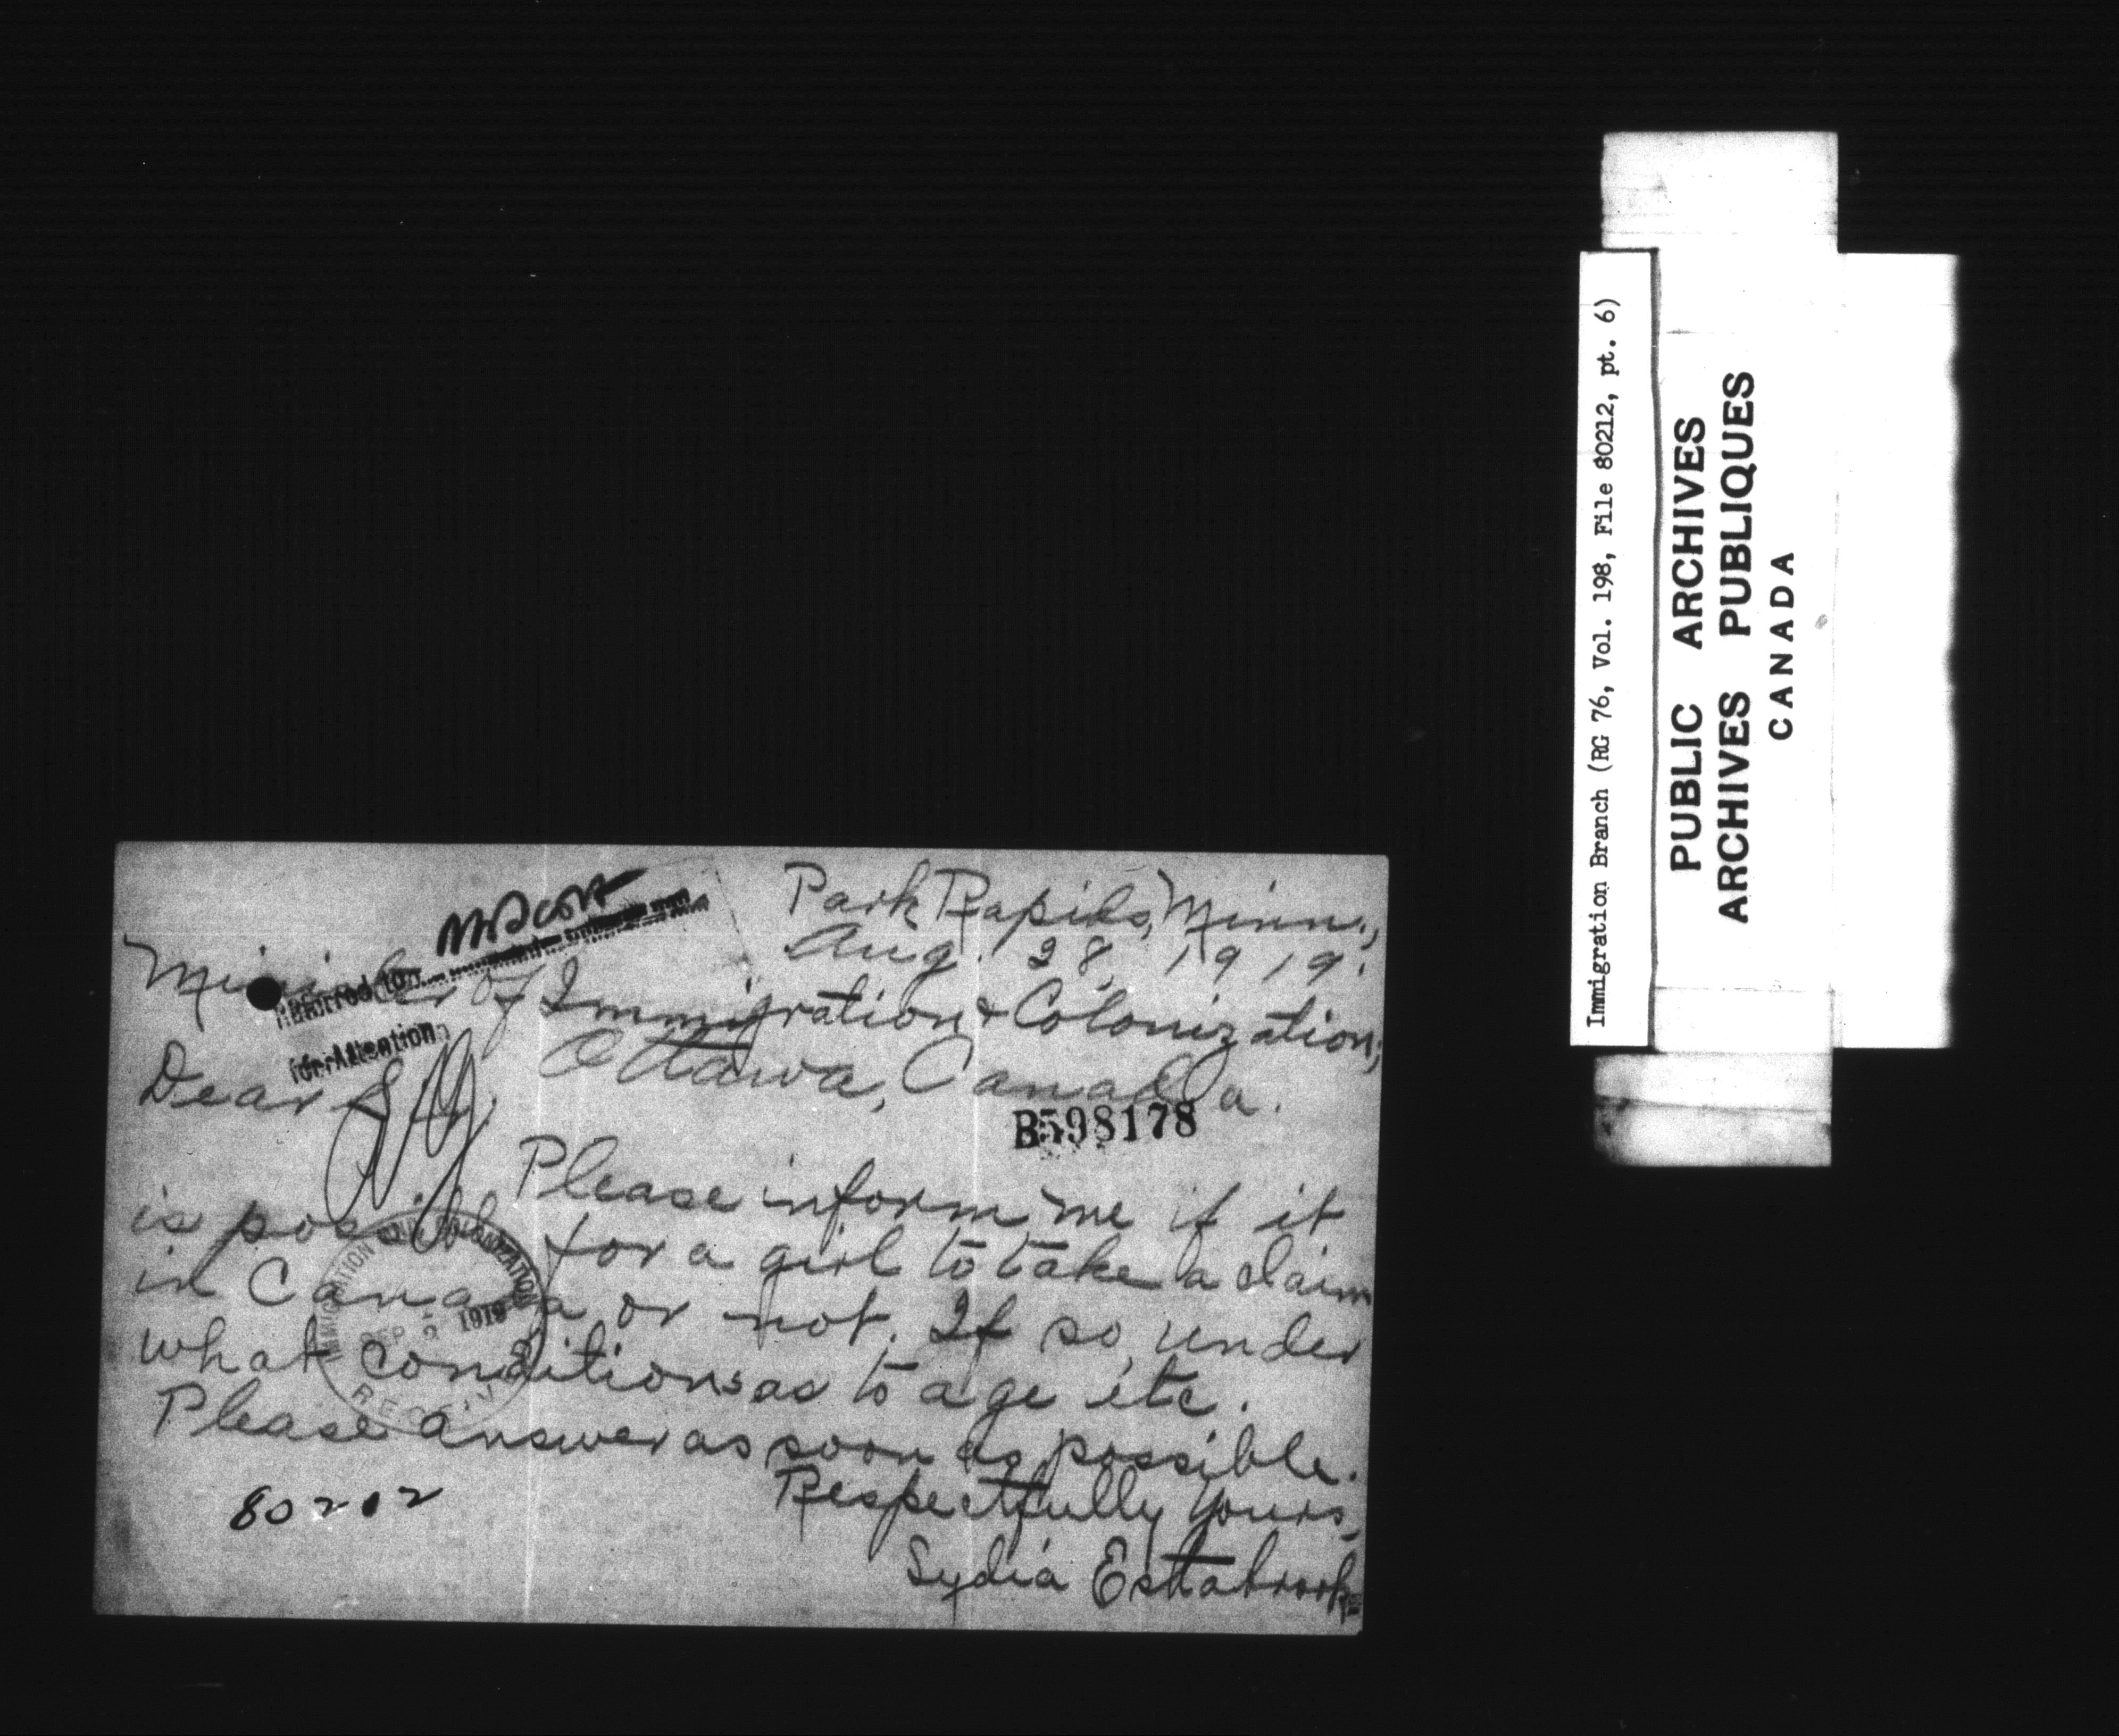 Park Rapids, Minn.,
Aug. 28, 1919.
Minister of Immigration & Colonization,
Ottawa, Canada.
Dear Sir,
Please inform me if it
is possible for a girl to take a claim
in Canada or not. If so, under
what conditions as to age etc.
Please answer as soon as possible.
Respectfully yours,
Lydia Estabrook
80212
Mr Scott
Referred to
for Attention
B598178
IMMIGRATION AND COLONIZATION
SEP 2 1919
RECEIVED
Immigration Branch (RG 76, Vol. 198, File 80212, pt. 6)
PUBLIC ARCHIVES
ARCHIVES PUBLIQUES
CANADA